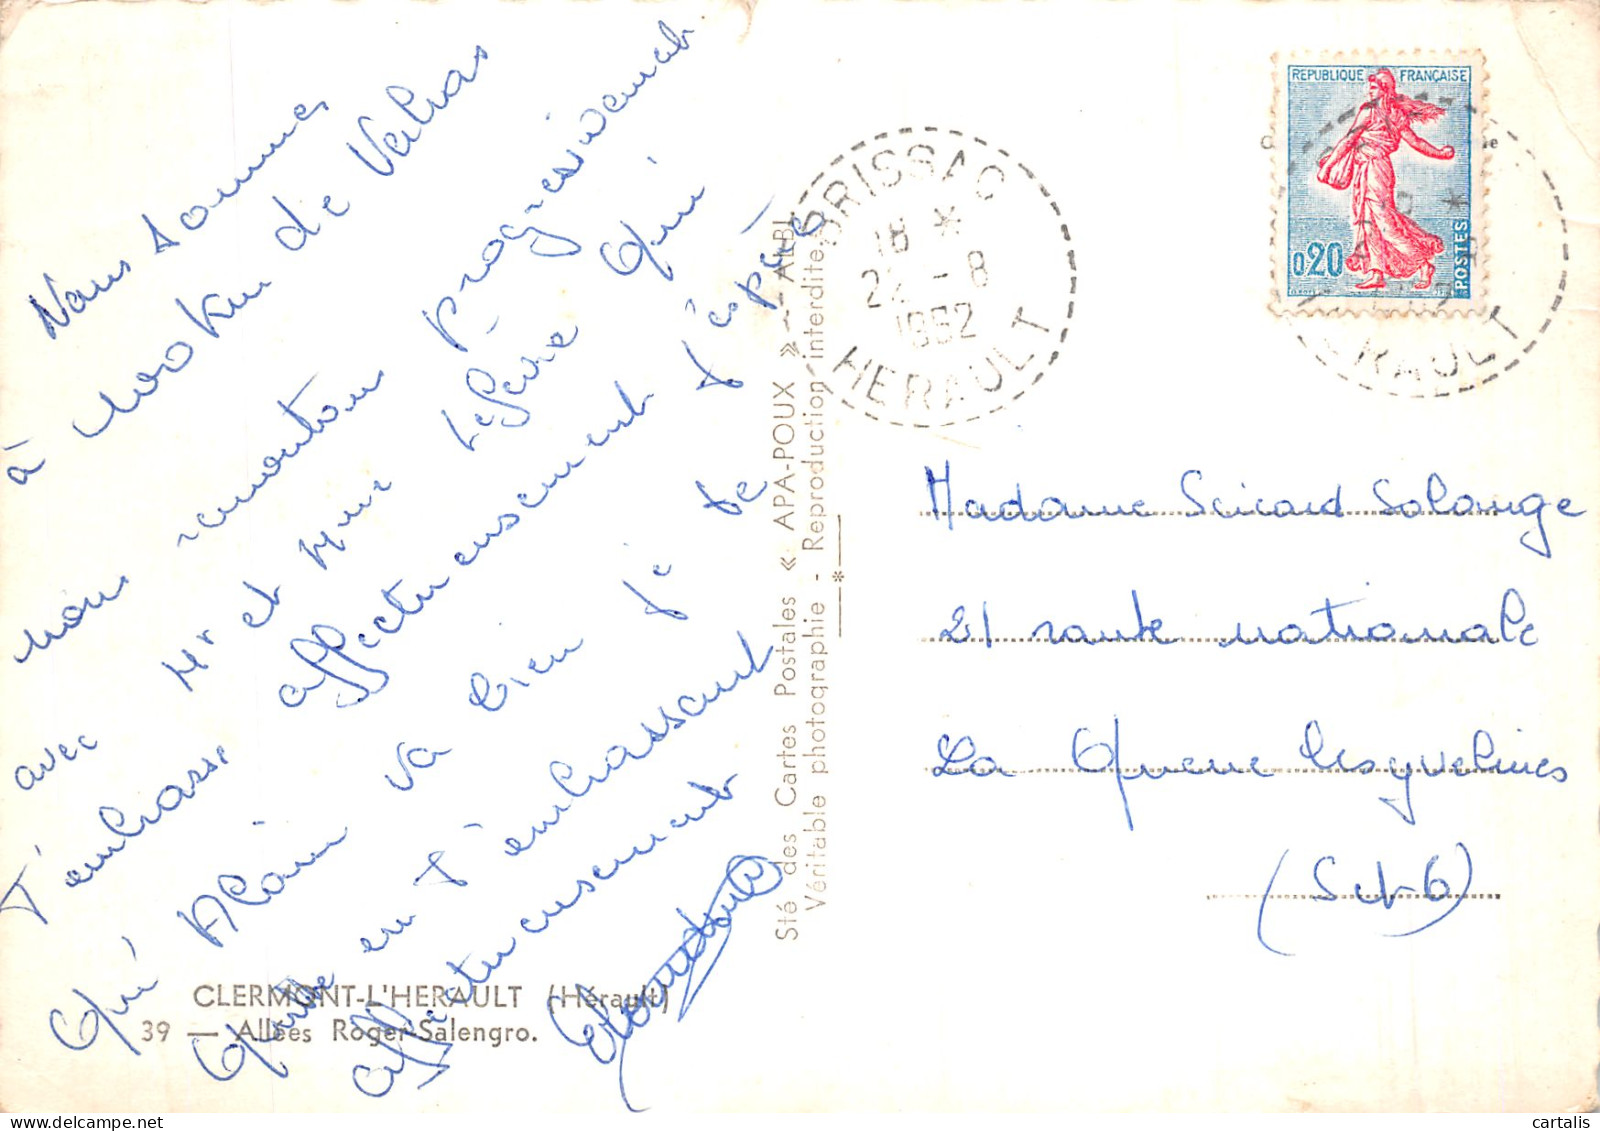 Nous sommes
à 400 km de Valras
nous remontons progressivement
avec Mr et Mme Lefèvre qui
t'embrasse affectueusement j'espère
qui Alain va bien je te
quitte en t'embrassant
affectueusement
CLERMONT-L'HERAULT (Hérault)
39 — Allées Roger-Salengro.
Sté des Cartes Postales « APA-POUX » — ALBI
Véritable photographie - Reproduction interdite
BRISSAC
18 *
22 - 8
1962
HERAULT
REPUBLIQUE FRANÇAISE
0,20
POSTES
HERAULT
Madame Sicard Solange
21 route nationale
La Queue les yvelines
(S et O)
cartalis